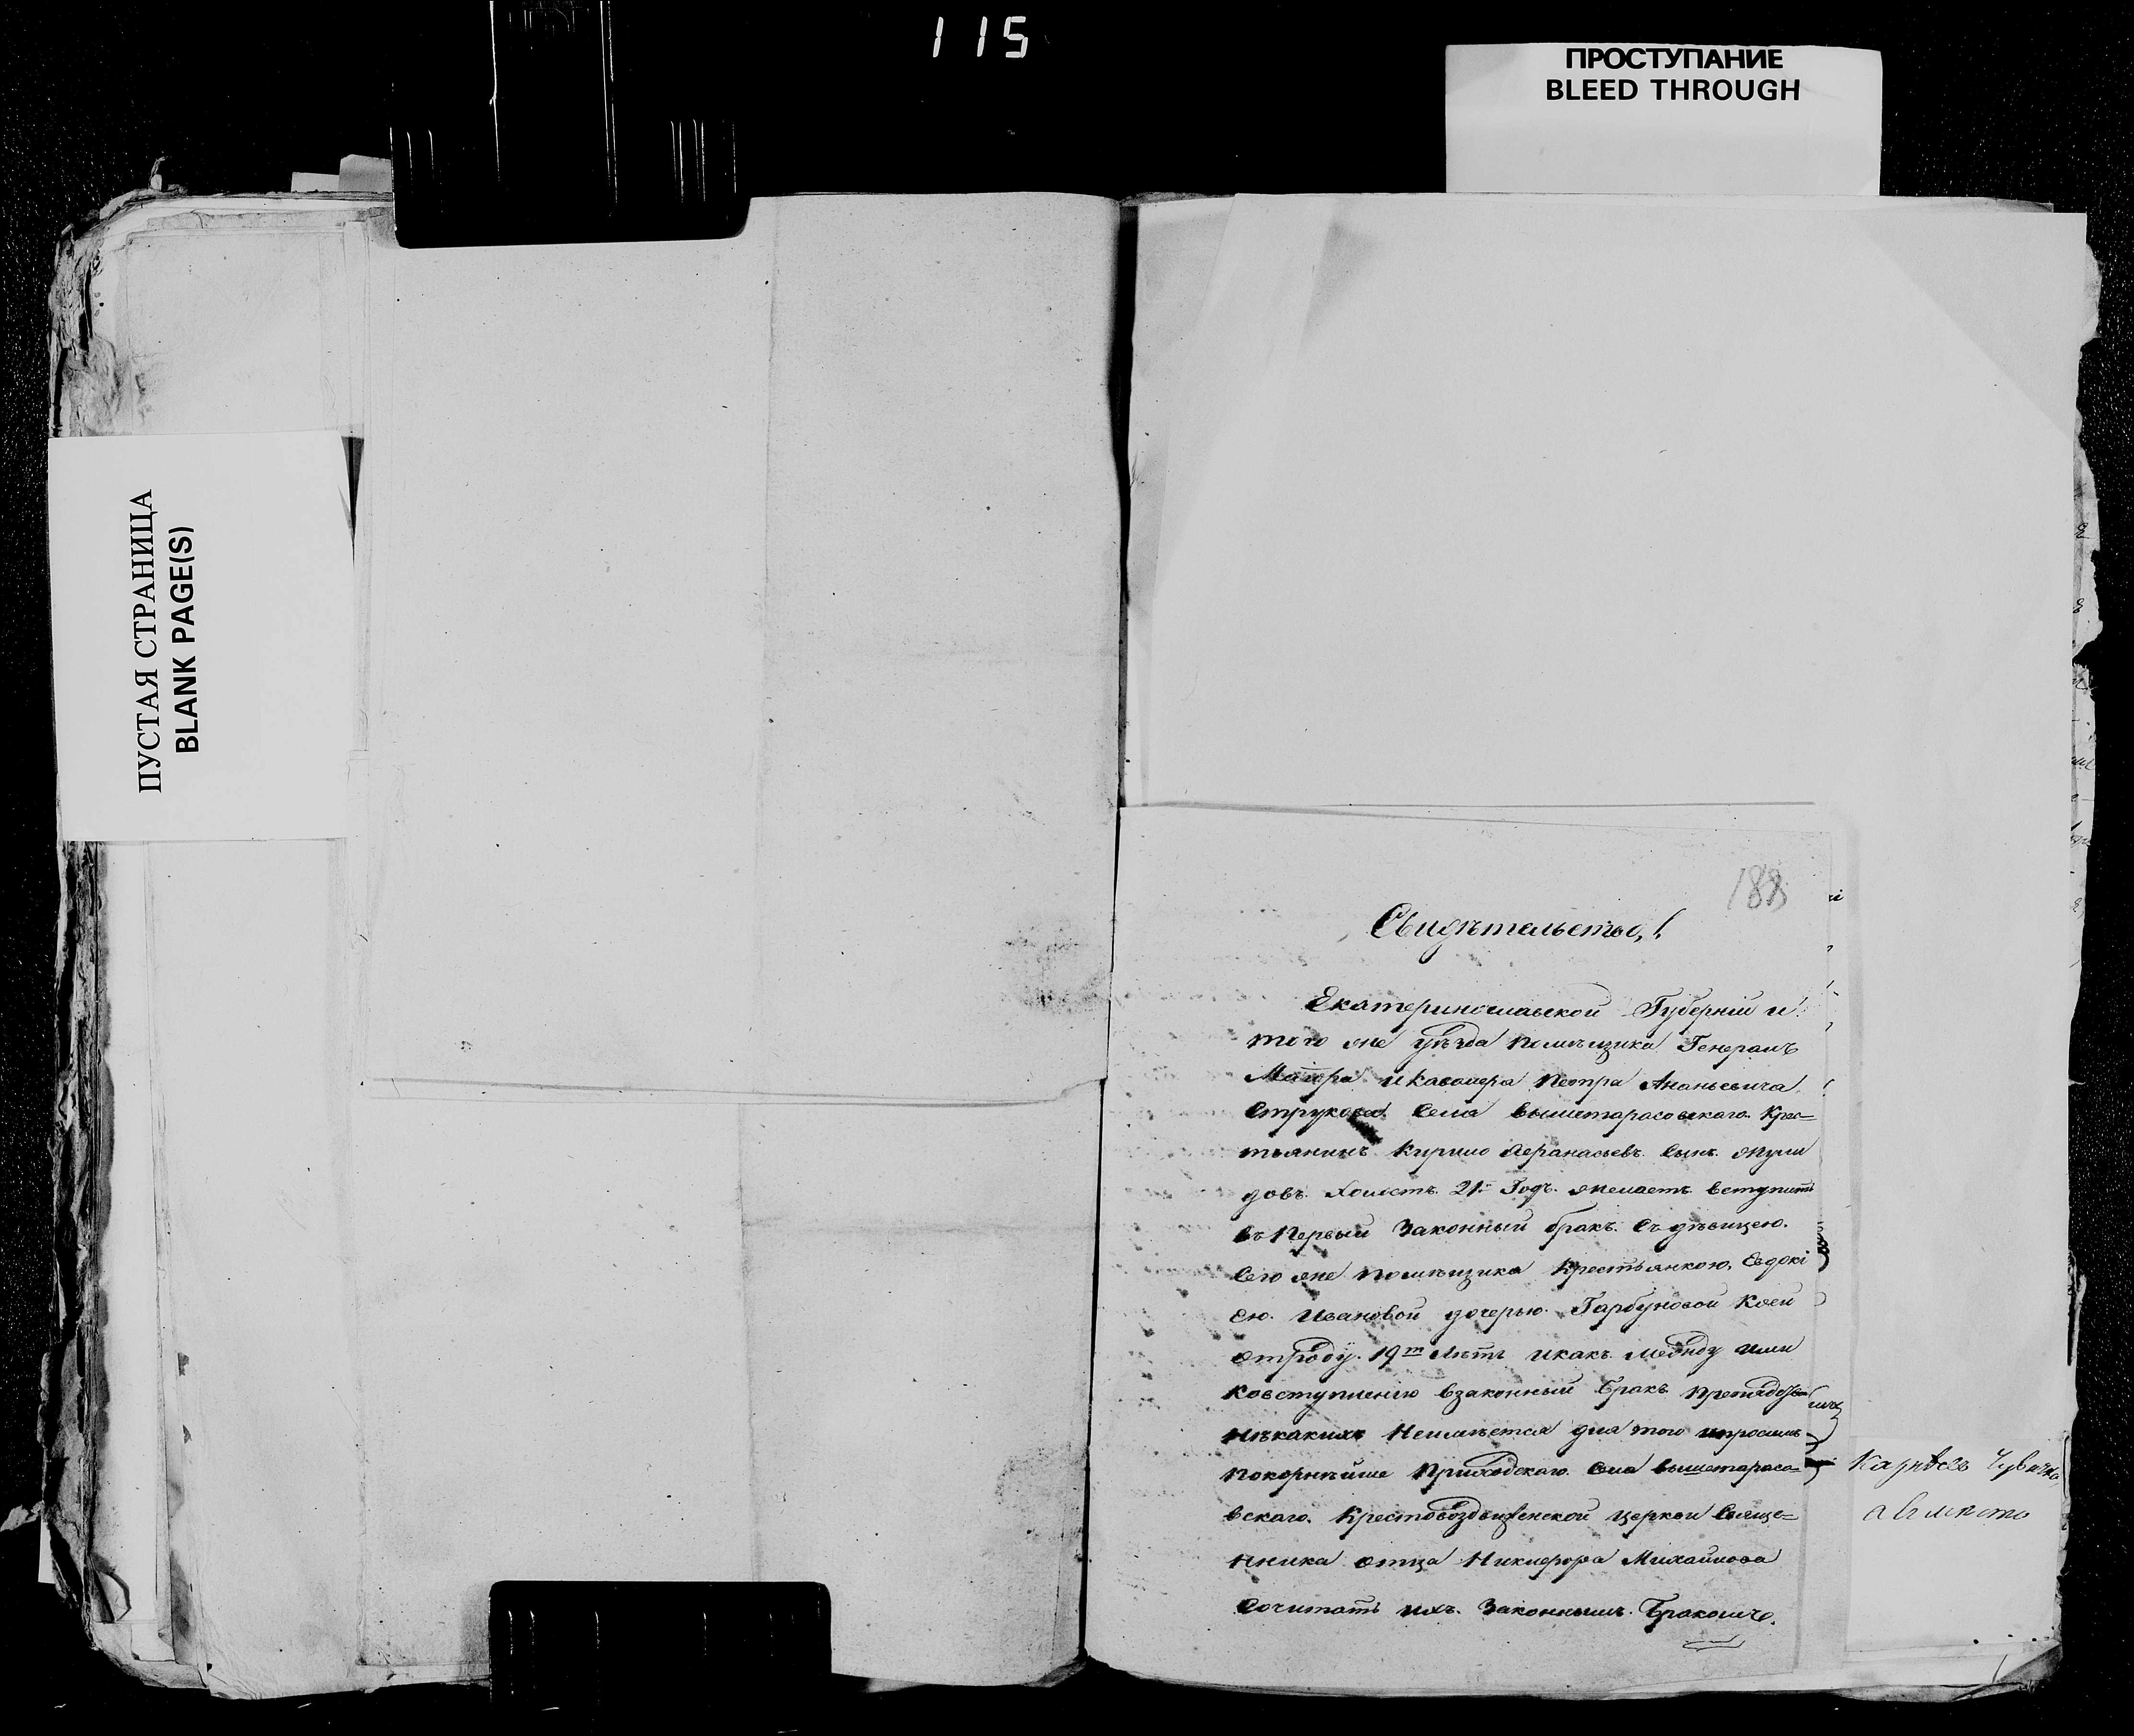 115
ПРОСТУПАНИЕ
BLEED THROUGH
ПУСТАЯ СТРАНИЦА
BLANK PAGE(S)
188
Свидѣтельство,
Екатеринославской Губерніи и
того же уѣзда помѣщика Генералъ
Маіора и кавалера Петра Ананьевича
Струкова Села вышетарасовскаго Крес=
тьянинъ Кирило Аѳанасьевъ сынъ
довъ Холостъ 21: Годъ желаетъ вступить
въ Первый Законный бракъ съ дѣвицею
сего же помѣщика Крестьянкою, Евдокі
ею Ивановой дочерью Гарбуновой коей
отроду 19ть Лѣтъ икакъ между ими
ковступленію взаконный Бракъ
нѣкакихъ Неимѣется для того ипросимъ
покорнѣйше Приходскаго села вышетарасо=
вскаго Крестовоздвиженской церкви Свяще=
нника отца Никифора Михайлова
Сочитать ихъ Законнымъ Бракомъ.